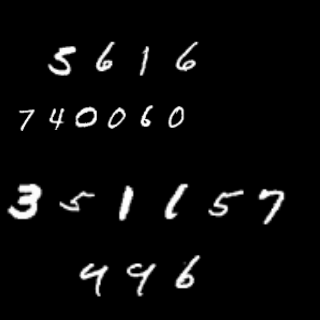 5616
740060
351157
996